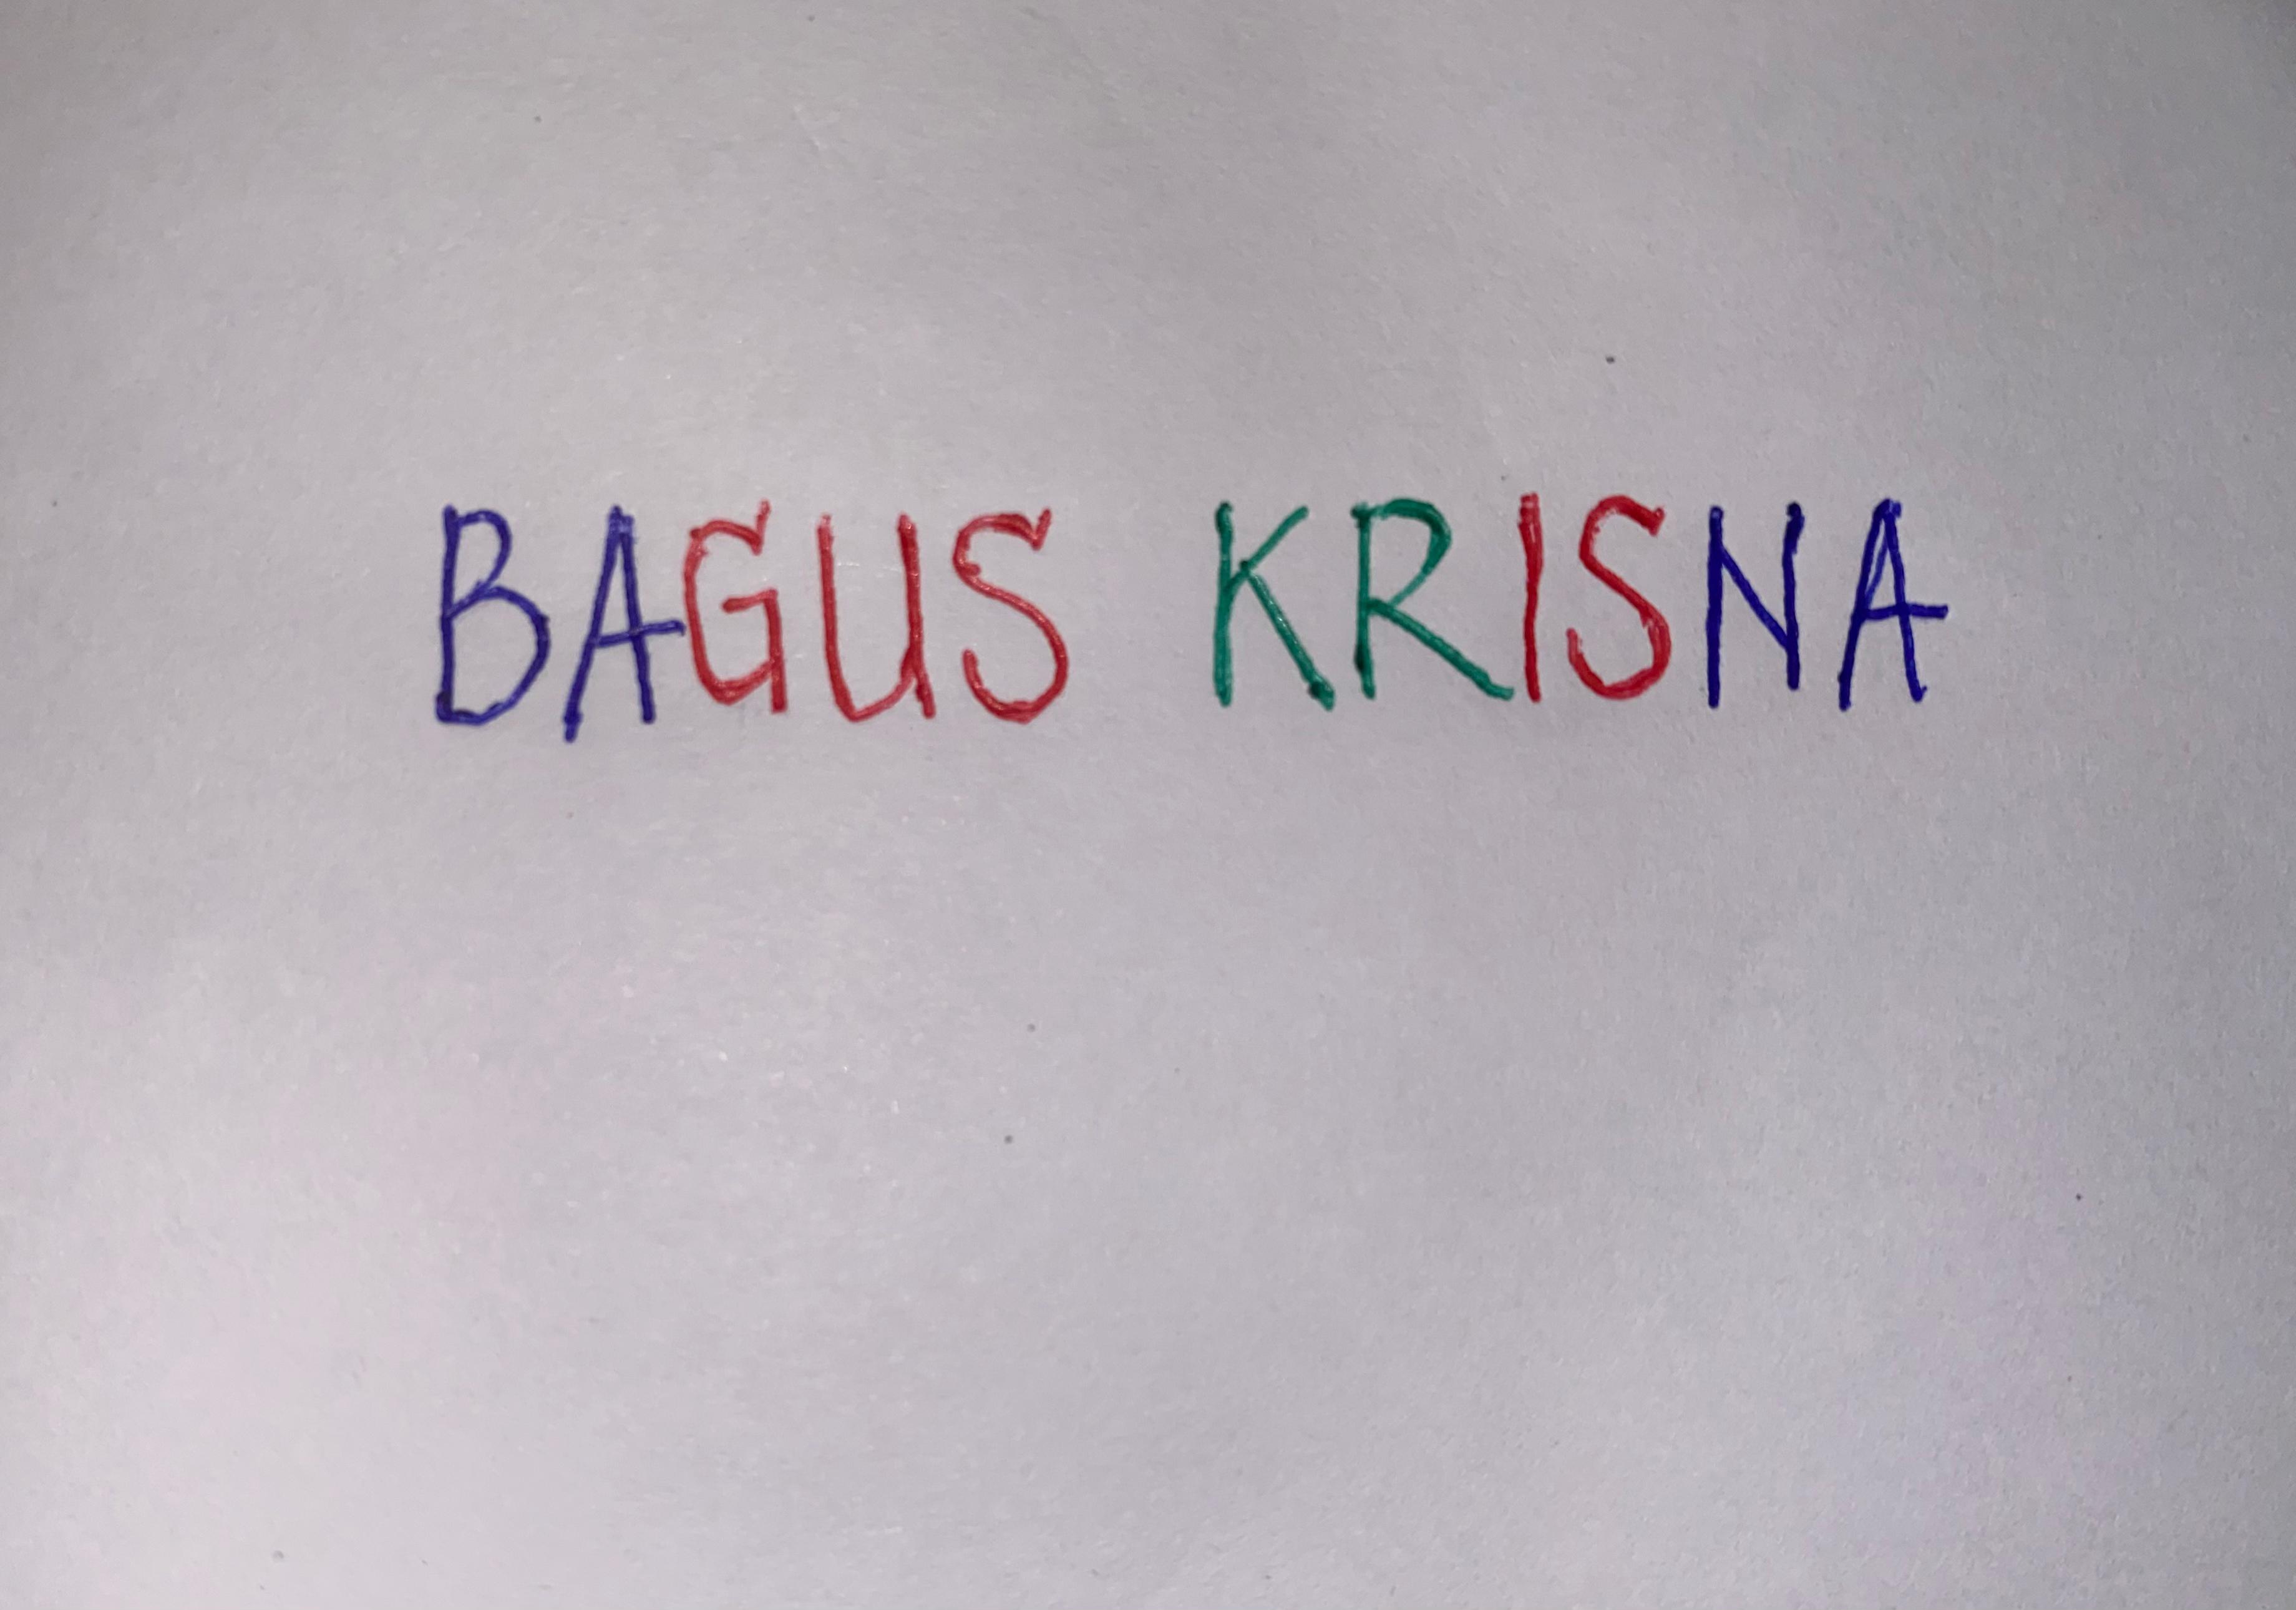 BAGUS KRISNA